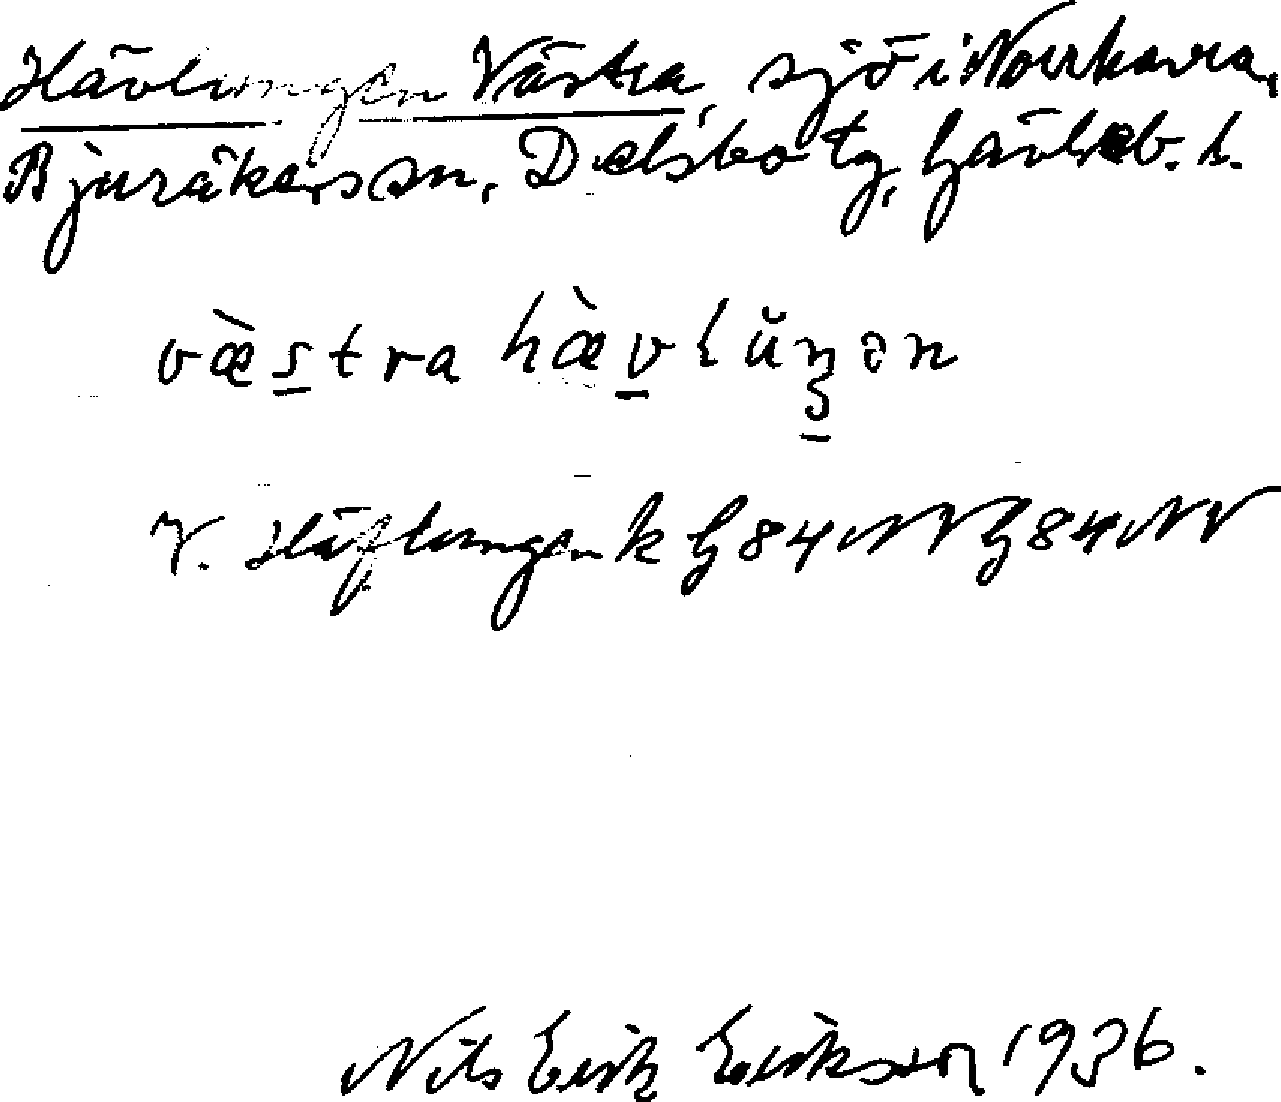 Hävlungen Västra, sjö i Norrhavra,
Bjuråkers sn, Delsbo tg, Gävleb. l.
væ̀s̲tra hæ̀v̲lŭŋ̲ən
V. Häflungen k G 84 NV g 84 NV
Nils Erik Erikson 1936.